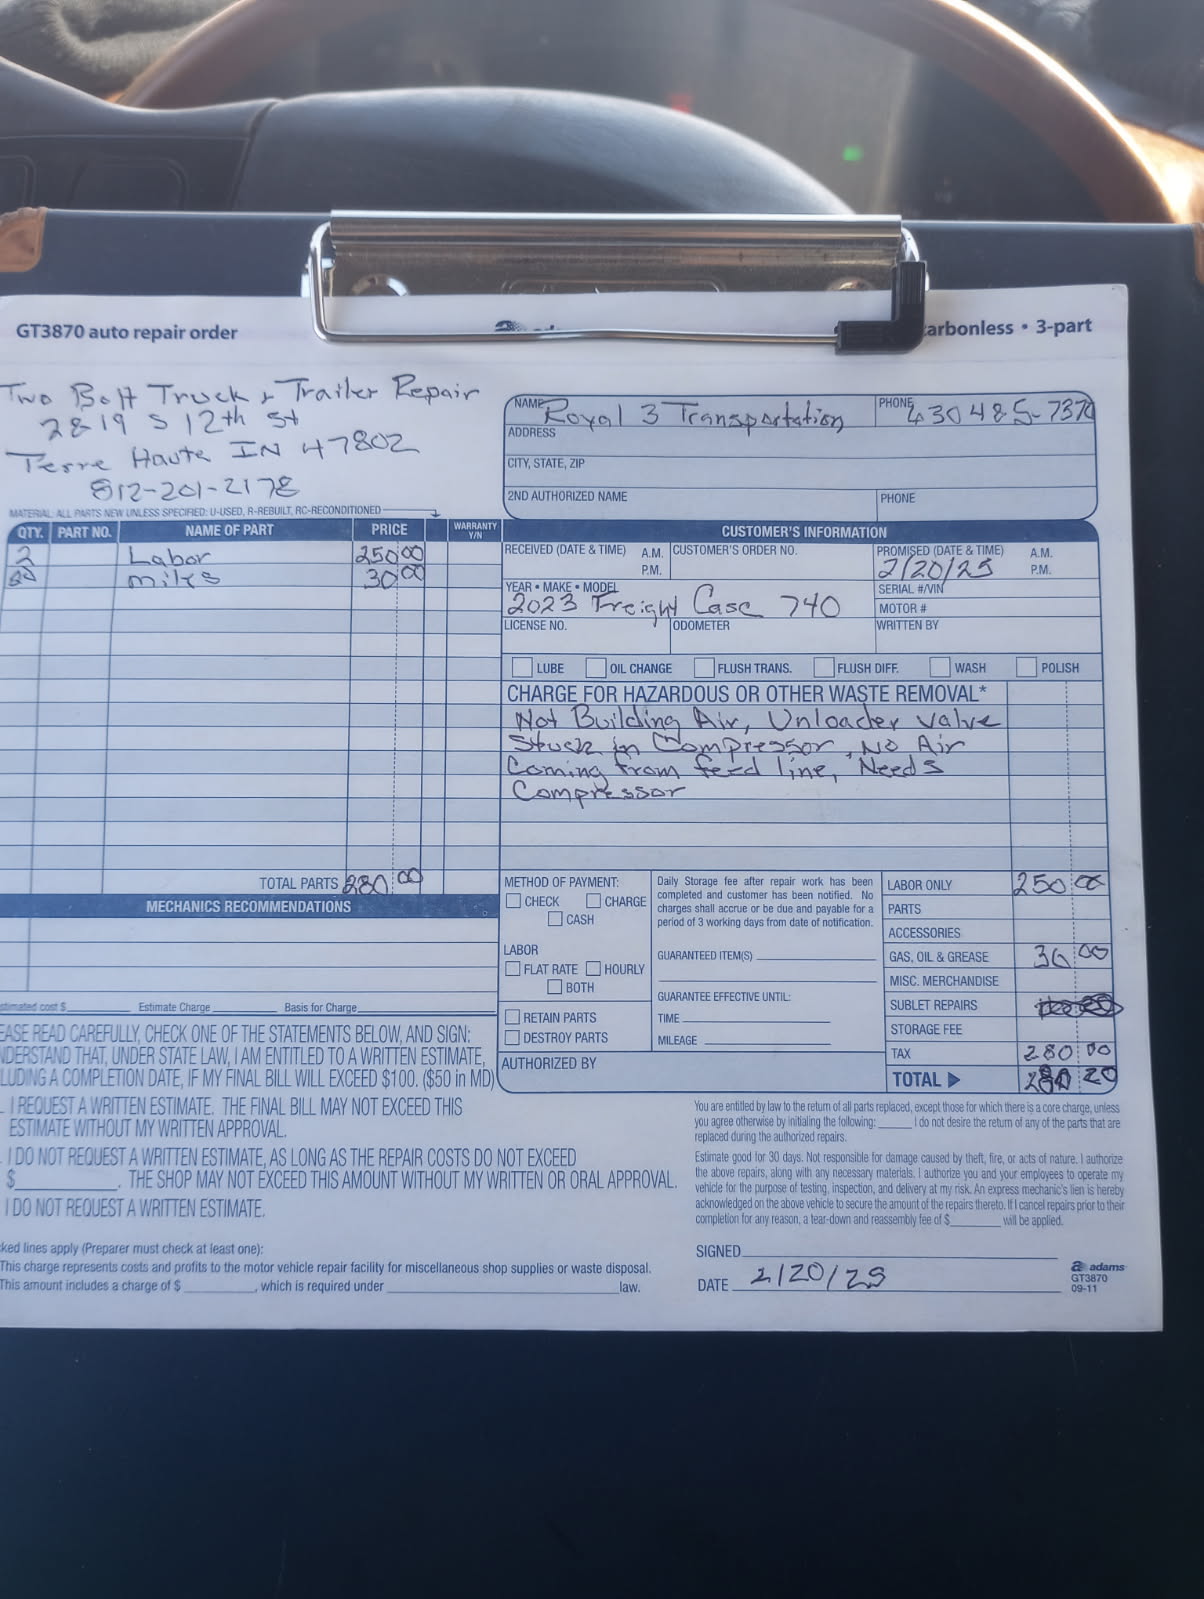 GT3870 auto repair order
carbonless • 3-part
Two Bolt Truck & Trailer Repair
2819 S 12th St
Terre Haute IN 47802
812-201-2178
NAME Royal 3 Transportation PHONE 630 485-7370
ADDRESS
CITY, STATE, ZIP
2ND AUTHORIZED NAME PHONE
MATERIAL: ALL PARTS NEW UNLESS SPECIFIED: U-USED, R-REBUILT, RC-RECONDITIONED
QTY. PART NO. NAME OF PART PRICE WARRANTY Y/N
2 Labor 250 00
Miles 30 00
TOTAL PARTS 280 00
CUSTOMER'S INFORMATION
RECEIVED (DATE & TIME) A.M. P.M. CUSTOMER'S ORDER NO. PROMISED (DATE & TIME) A.M. P.M.
2/20/25
YEAR • MAKE • MODEL SERIAL #/VIN
2023 Freight Casc 740 MOTOR #
LICENSE NO. ODOMETER WRITTEN BY
LUBE OIL CHANGE FLUSH TRANS. FLUSH DIFF. WASH POLISH
CHARGE FOR HAZARDOUS OR OTHER WASTE REMOVAL*
Not Building Air, Unloader valve
Stuck in Compressor, No Air
Coming from feed line, Needs
Compressor
MECHANICS RECOMMENDATIONS
Estimate Charge Basis for Charge
METHOD OF PAYMENT:
CHECK CHARGE
CASH
LABOR
FLAT RATE HOURLY
BOTH
RETAIN PARTS
DESTROY PARTS
AUTHORIZED BY
Daily Storage fee after repair work has been
completed and customer has been notified. No
charges shall accrue or be due and payable for a
period of 3 working days from date of notification.
GUARANTEED ITEM(S)
GUARANTEE EFFECTIVE UNTIL:
TIME
MILEAGE
LABOR ONLY 250 00
PARTS
ACCESSORIES
GAS, OIL & GREASE 30 00
MISC. MERCHANDISE
SUBLET REPAIRS
STORAGE FEE
TAX 280 00
TOTAL
EASE READ CAREFULLY, CHECK ONE OF THE STATEMENTS BELOW, AND SIGN:
NDERSTAND THAT, UNDER STATE LAW, I AM ENTITLED TO A WRITTEN ESTIMATE,
LUDING A COMPLETION DATE, IF MY FINAL BILL WILL EXCEED $100. ($50 in MD)
I REQUEST A WRITTEN ESTIMATE. THE FINAL BILL MAY NOT EXCEED THIS
ESTIMATE WITHOUT MY WRITTEN APPROVAL.
I DO NOT REQUEST A WRITTEN ESTIMATE, AS LONG AS THE REPAIR COSTS DO NOT EXCEED
$ . THE SHOP MAY NOT EXCEED THIS AMOUNT WITHOUT MY WRITTEN OR ORAL APPROVAL.
I DO NOT REQUEST A WRITTEN ESTIMATE.
ked lines apply (Preparer must check at least one):
This charge represents costs and profits to the motor vehicle repair facility for miscellaneous shop supplies or waste disposal.
This amount includes a charge of $ , which is required under law.
You are entitled by law to the return of all parts replaced, except those for which there is a core charge, unless
you agree otherwise by initialing the following: I do not desire the return of any of the parts that are
replaced during the authorized repairs.
Estimate good for 30 days. Not responsible for damage caused by theft, fire, or acts of nature. I authorize
the above repairs, along with any necessary materials. I authorize you and your employees to operate my
vehicle for the purpose of testing, inspection, and delivery at my risk. An express mechanic's lien is hereby
acknowledged on the above vehicle to secure the amount of the repairs thereto. If I cancel repairs prior to their
completion for any reason, a tear-down and reassembly fee of $ will be applied.
SIGNED
DATE 2/20/25
adams
GT3870
09-11